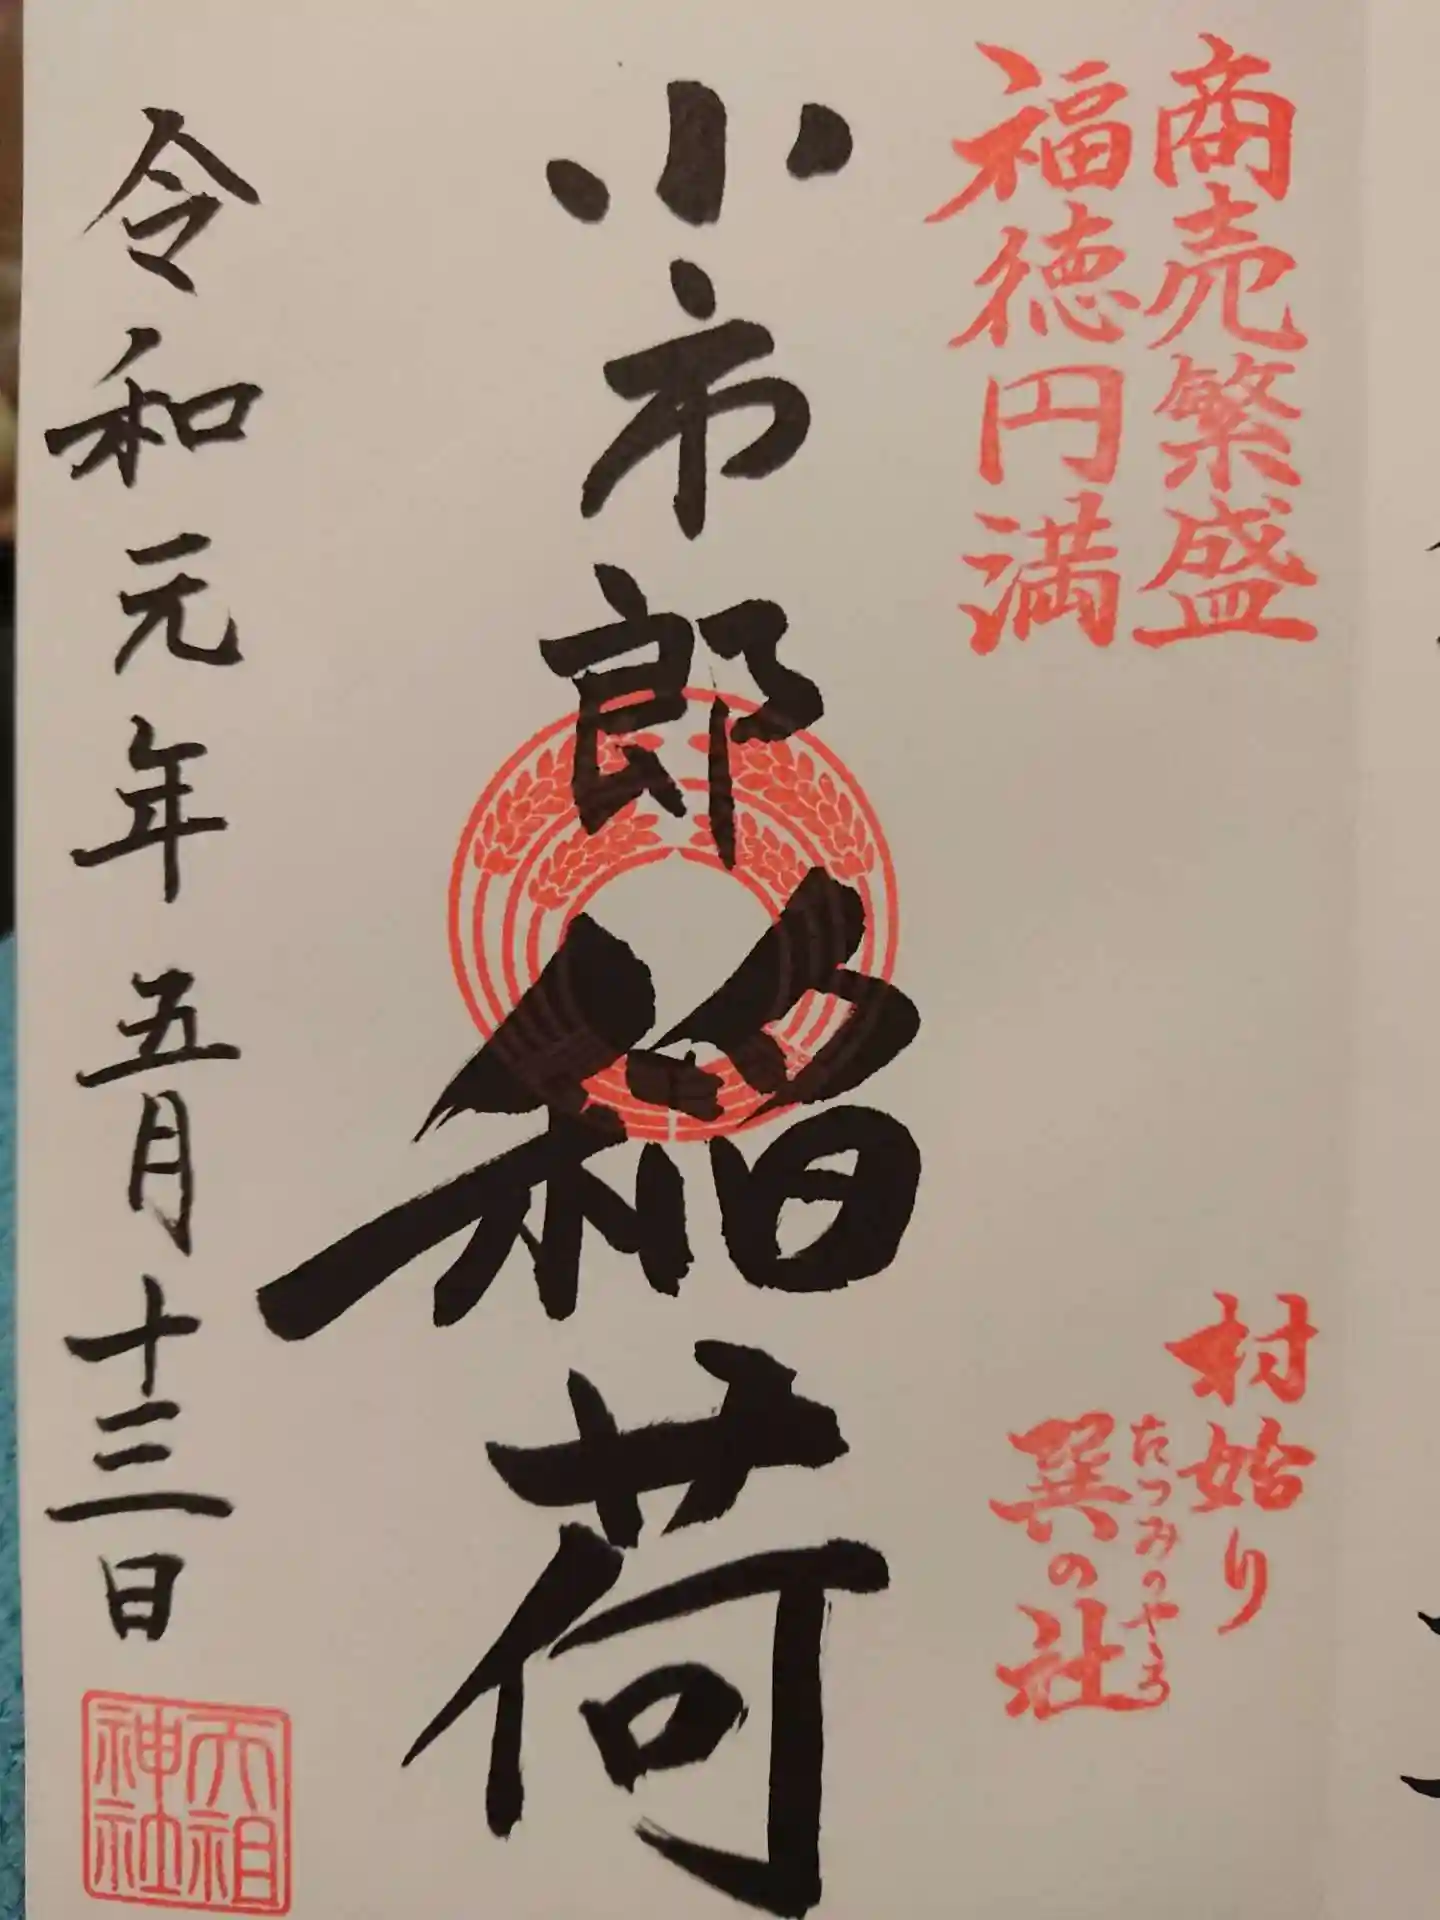 商売繁盛
福徳円満
村始り
たつみのやしろ
巽の社
小市郎稲荷
令和元年五月十三日
天祖
神社